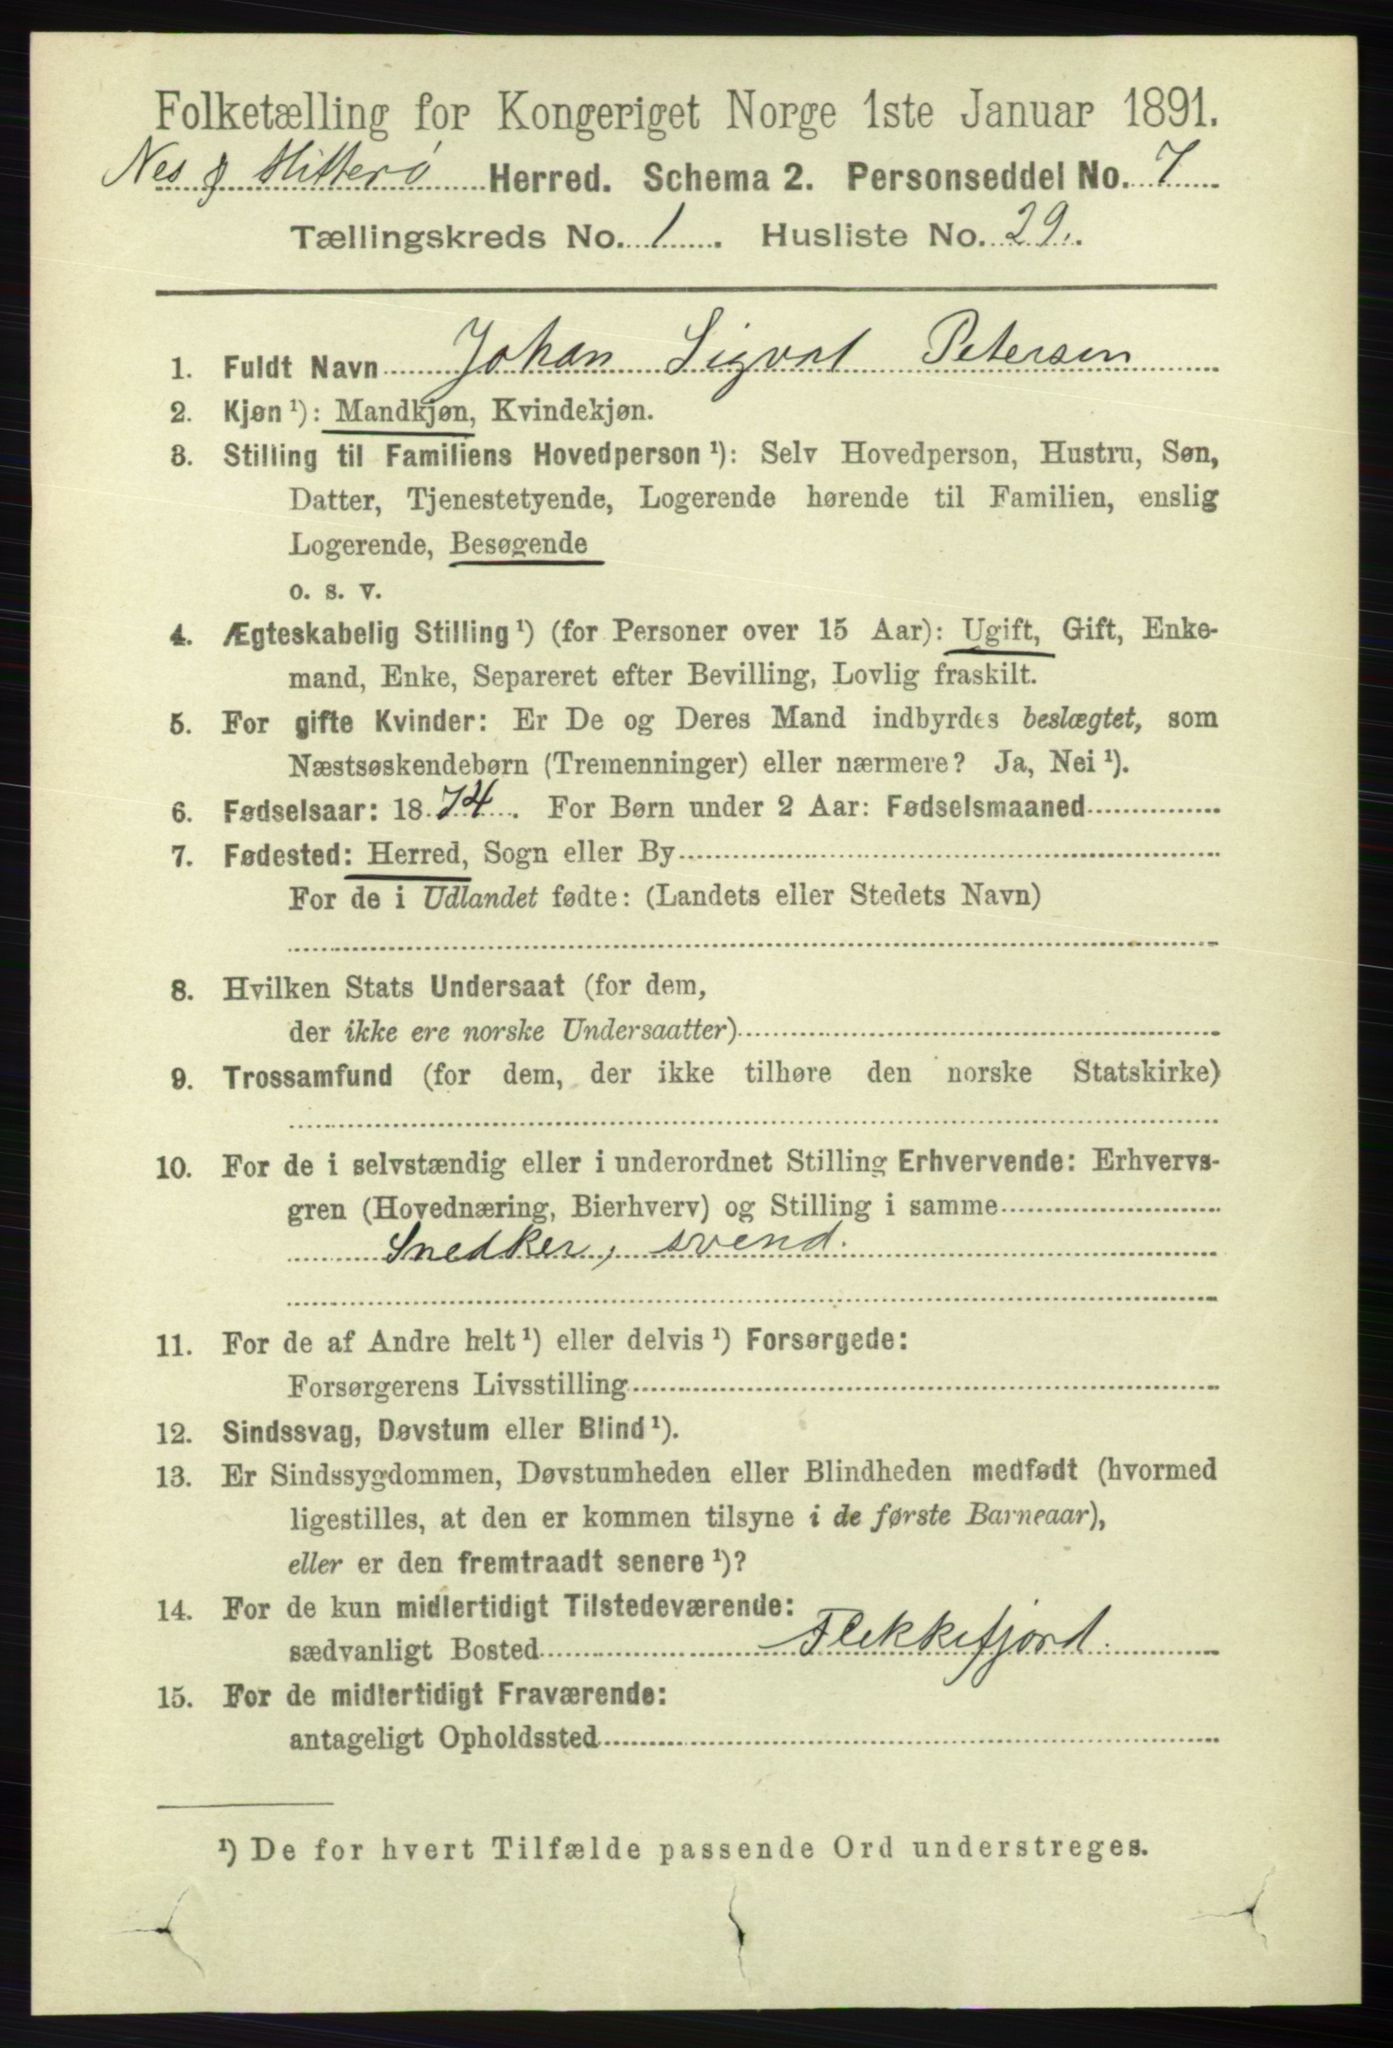 Folketælling for Kongeriget Norge 1ste Januar 1891.
Nes & Hitterø Herred. Schema 2. Personseddel No. 7
Tællingskreds No. 1. Husliste No. 29.
1. Fuldt Navn Johan Sigval Petersen
2. Kjøn¹): Mandkjøn, Kvindekjøn.
3. Stilling til Familiens Hovedperson¹): Selv Hovedperson, Hustru, Søn,
Datter, Tjenestetyende, Logerende hørende til Familien, enslig
Logerende, Besøgende
o. s. v.
4. Ægteskabelig Stilling¹) (for Personer over 15 Aar): Ugift, Gift, Enke-
mand, Enke, Separeret efter Bevilling, Lovlig fraskilt.
5. For gifte Kvinder: Er De og Deres Mand indbyrdes beslægtet, som
Næstsøskendebørn (Tremenninger) eller nærmere? Ja, Nei¹).
6. Fødselsaar: 1874. For Børn under 2 Aar: Fødselsmaaned
7. Fødested: Herred, Sogn eller By
For de i Udlandet fødte: (Landets eller Stedets Navn)
8. Hvilken Stats Undersaat (for dem,
der ikke ere norske Undersaatter)
9. Trossamfund (for dem, der ikke tilhøre den norske Statskirke)
10. For de i selvstændig eller i underordnet Stilling Erhvervende: Erhvervs-
gren (Hovednæring, Bierhverv) og Stilling i samme
Snedker, svend.
11. For de af Andre helt¹) eller delvis¹) Forsørgede:
Forsørgerens Livsstilling
12. Sindssvag, Døvstum eller Blind¹).
13. Er Sindssygdommen, Døvstumheden eller Blindheden medfødt (hvormed
ligestilles, at den er kommen tilsyne i de første Barneaar),
eller er den fremtraadt senere¹)?
14. For de kun midlertidigt Tilstedeværende:
sædvanligt Bosted Flekkefjord.
15. For de midlertidigt Fraværende:
antageligt Opholdssted
¹) De for hvert Tilfælde passende Ord understreges.